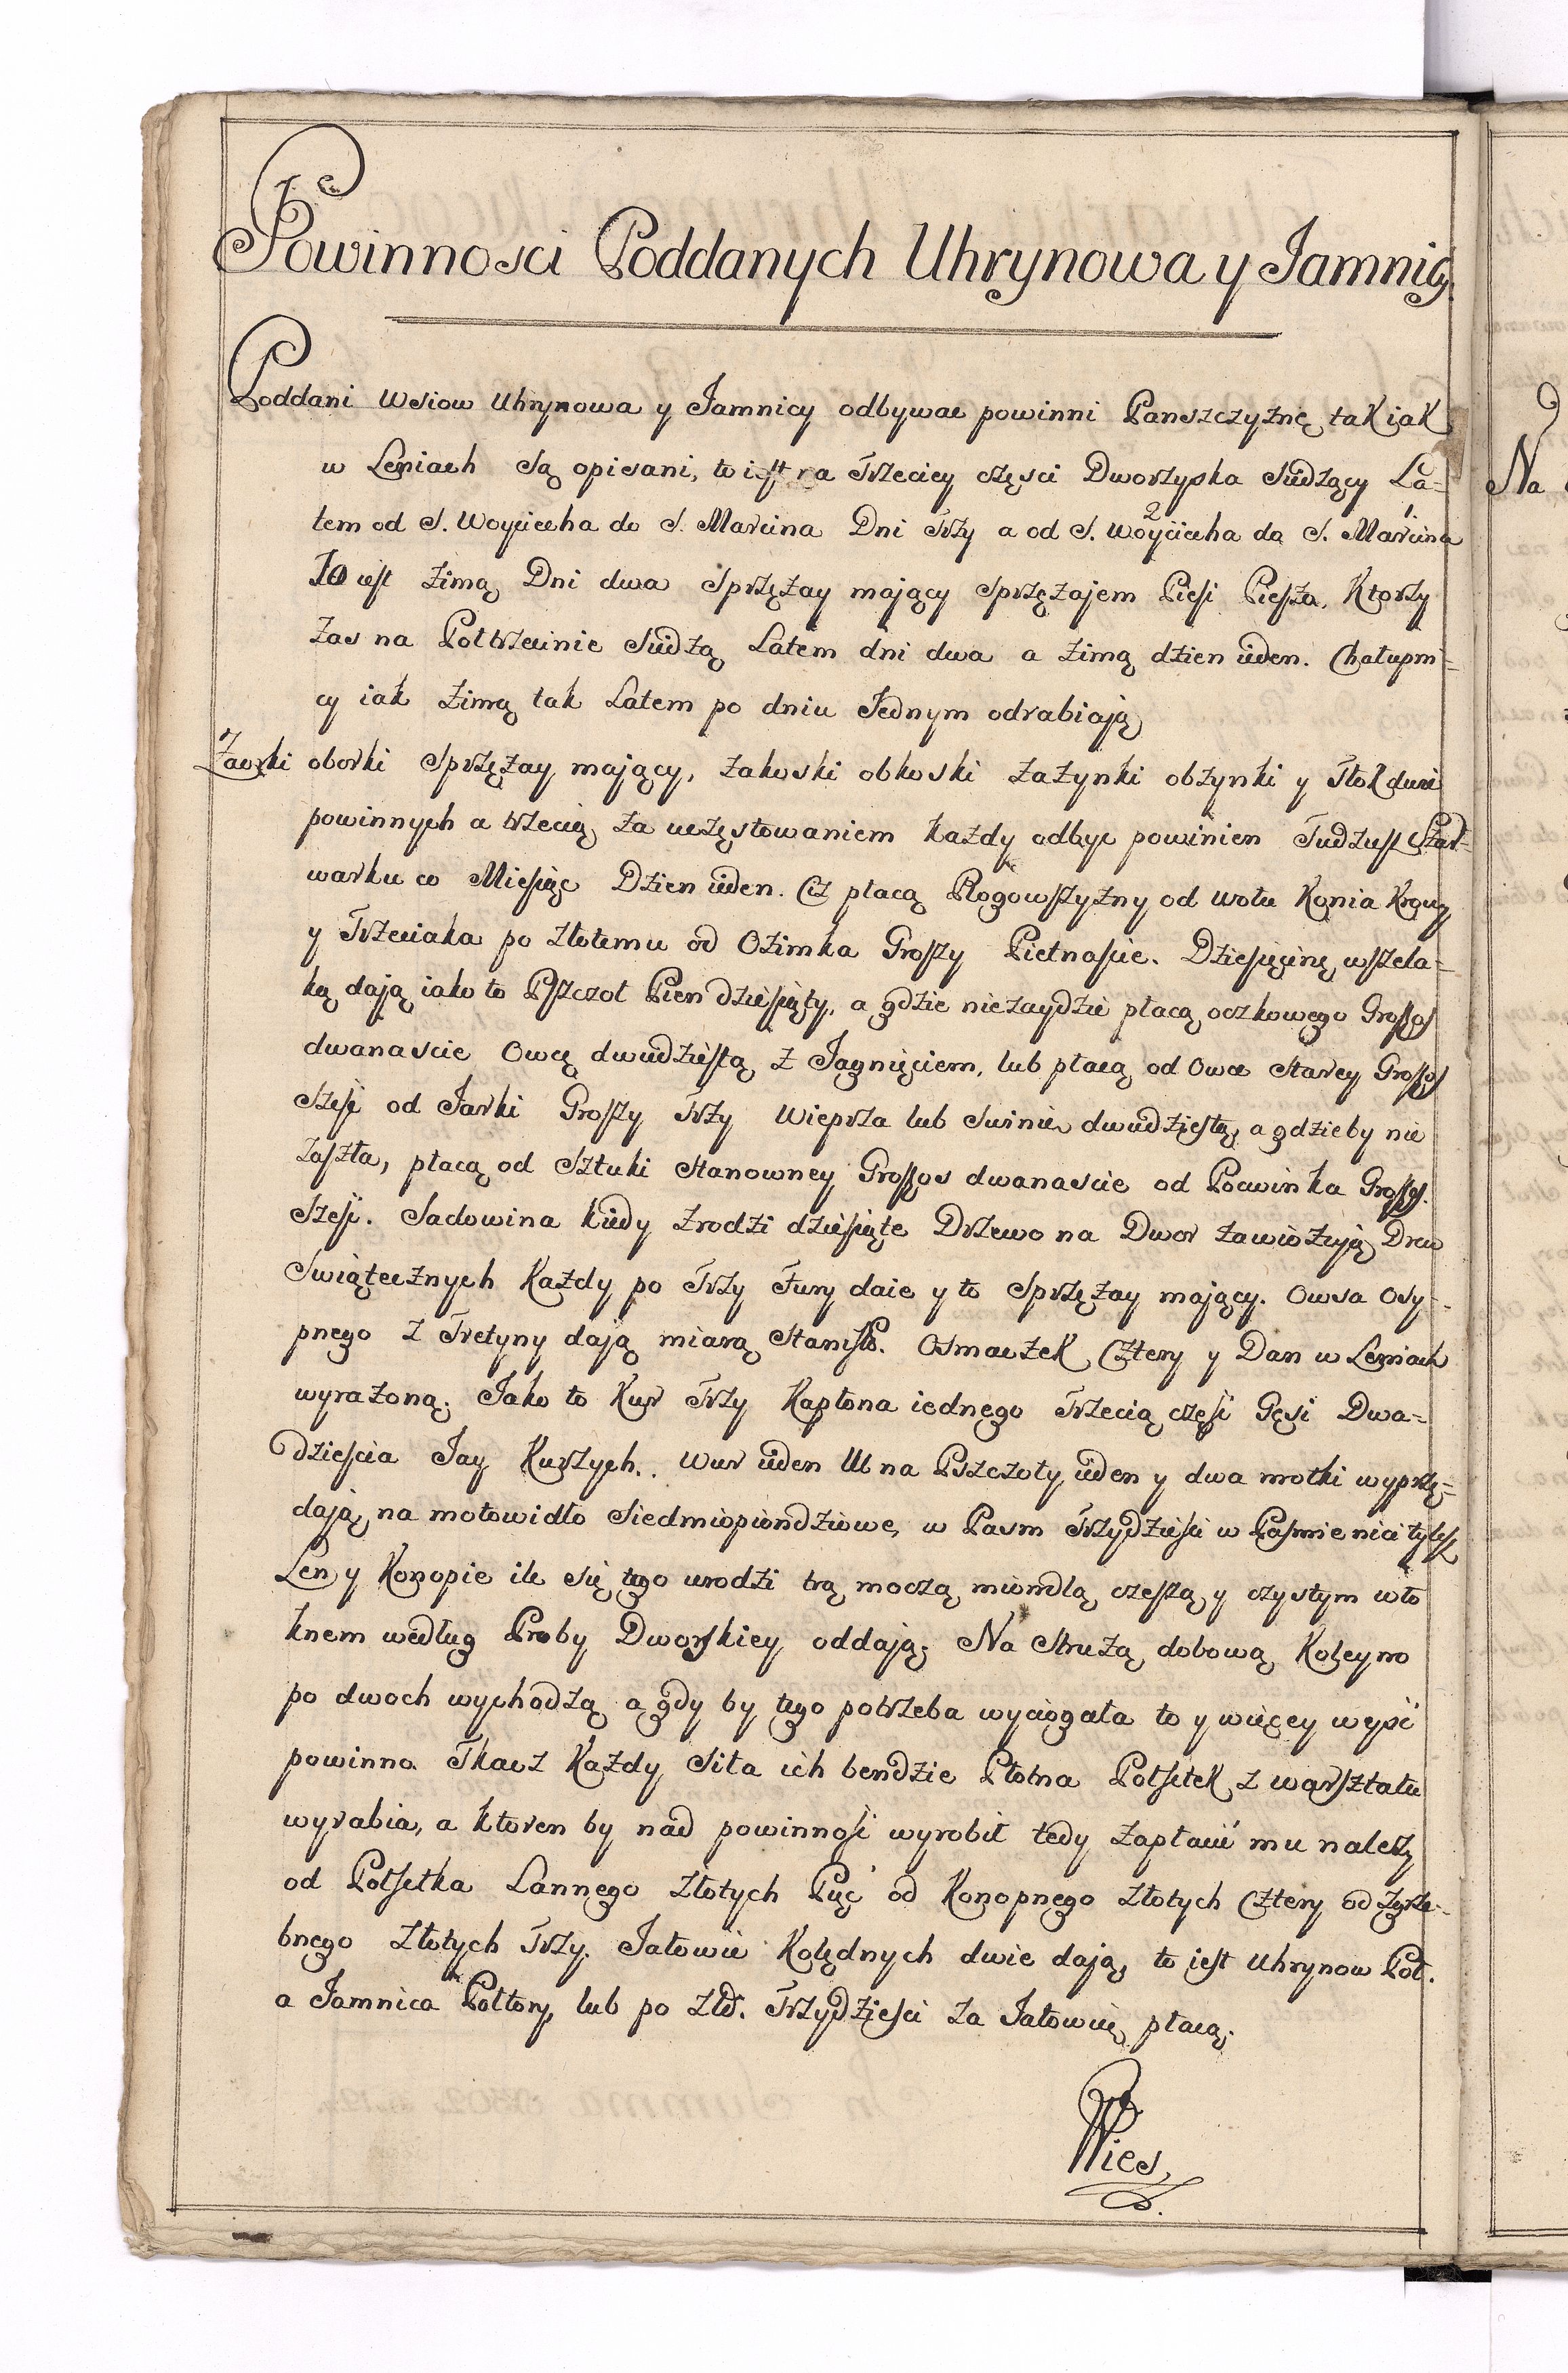 Powinnosci Poddanych Uhrynowa y Jamnicy
Poddani Wsiow Uhrynowa y Jamnicy odbywac powinni Panszczyznę tak iak
w Leniach są opisani, to iest na Trzeciey częsci Dworzyska Siedzący La-
tem od S. Woyciecha do S. Marcina Dni Trzy a od S. Woyciecha do S. Marcina
To iest zimą Dni dwa Sprzęzay mający Sprzęzajem Piesi Pieszo. Ktorzy
zas na Poltrzecinie Siedzą Latem dni dwa a zimą dzien ieden. Chałupni-
cy iak zimą tak Latem po dniu Jednym odrabiają
Zaorki oborki Sprzęzay mający, zakoski obkoski zazynki obzynki y Tłok dwie
powinnych a trzecią za uczęstowaniem kazdy odbyc powinien Tudzież Szar-
warku co Miesiąc Dzien ieden. Ci płacą Rogowszyzny od wołu Konia Krowy
y Trzeciaka po złotemu od Ozimka Groszy Pietnascie. Dziesięcinę wszela-
ką dają iako to Pszczoł Pien dziesiąty, a gdzie niezaydzie płacą oczkowego Groszos
dwanascie Owcę dwudziestą z Jagnięciem, lub płacą od Owce Starey Groszos
Szesc od Jarki Groszy Trzy Wieprza lub Swinie dwudziestą, a gdzieby nie
zaszła, płacą od Sztuki Stanowney Groszos dwanascie od Pocwinka Groszos.
Szesc. Sadowina kiedy zrodzi dziesiąte Drzewo na Dwor zawiozują Drew
Swiątecznych Kazdy po Trzy Fury daie y to Sprzęzay mający. Owsa Osy-
pnego z Tretyny dają miarą Stanisło. Osmaczek Cztery y Dan w Leniach
wyrazoną. Jako to Kur Trzy Kapłona iednego Trzecią częsc Gęsi Dwa-
dziescia Jay Kurzych. Wur ieden Ul na Pszczoły ieden y dwa motki wyprzę-
dają na motowidło Siedmiopiondziowe, w Pasm Trzydziesci w Pasmie nici tylesz
Len y Konopie ile się tego urodzi trą moczą miondlą czeszą y czystym wło
knem według Proby Dworskiey oddają. Na Struzą dobową Koleyno
po dwoch wychodzą a gdy by tego potrzeba wyciągała to y więcey wyść
powinno. Tkacz Kazdy Siła ich bendzie Płotna Połsetek z warsztatu
wyrabia, a ktoren by nad powinnosc wyrobił tedy zapłacić mu nalezy
od Połsetka Lannego złotych Pięć od Konopnego złotych Cztery od zgrze-
bnego złotych Trzy. Jałowic Kolędnych dwie dają, to jest Uhrynow Poł.
a Jamnica Połtory, lub po zło. Trzydziesci za Jałowicę płacą.
Wies